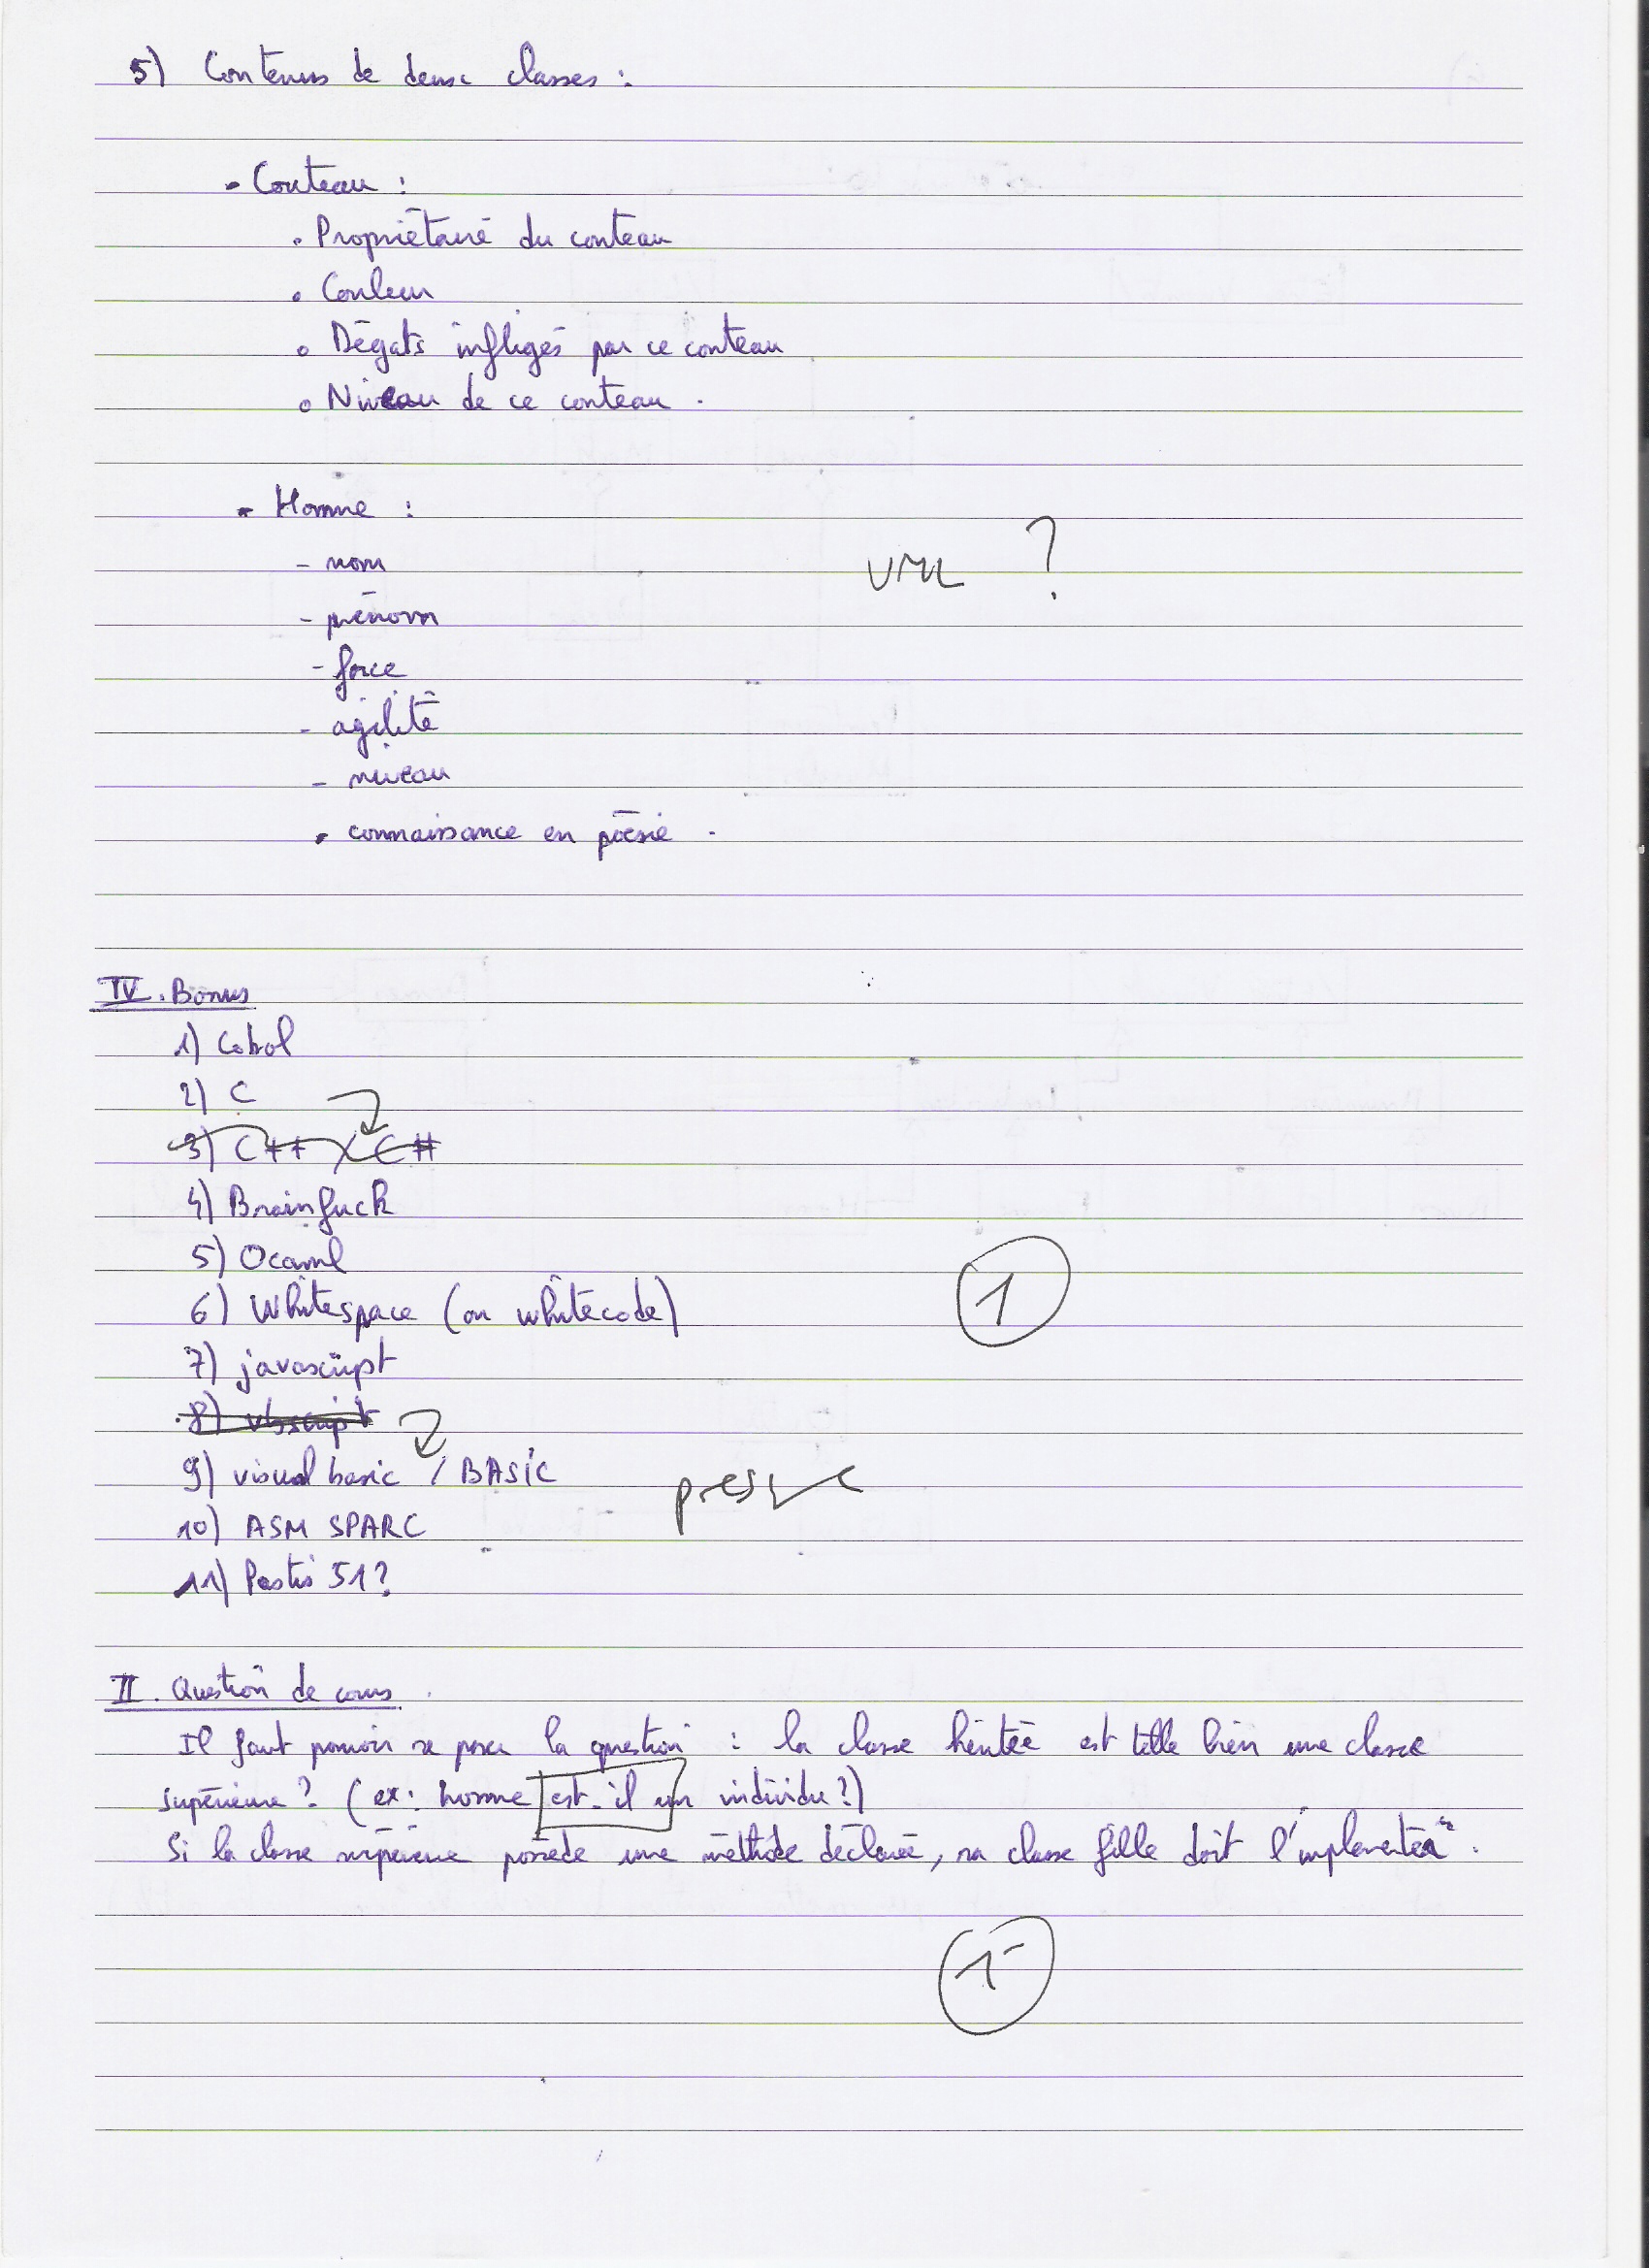 5) Contenus de deux classes :
- Couteau :
• Propriétaire du couteau
• Couleur
o Dégats infligés par ce couteau
o Niveau de ce couteau.
- Homme :
- nom
UML ?
- prénom
- force
- agilité
- niveau
• connaissance en poésie.
IV. Bonus
1) Cobol
2) C
3) C++ / C#
4) Brainfuck
5) Ocaml
6) Whitespace (ou whitecode)
1
7) javascript
8) vbscript
9) visual basic / BASIC
presque
10) ASM SPARC
11) Pastis 51?
II. Question de cours.
Il faut pouvoir se poser la question : la classe héritée est telle bien une classe
supérieure ? (ex: homme est-il un individu ?)
Si la classe supérieure possède une méthode déclarée, sa classe fille doit l'implementer".
1-